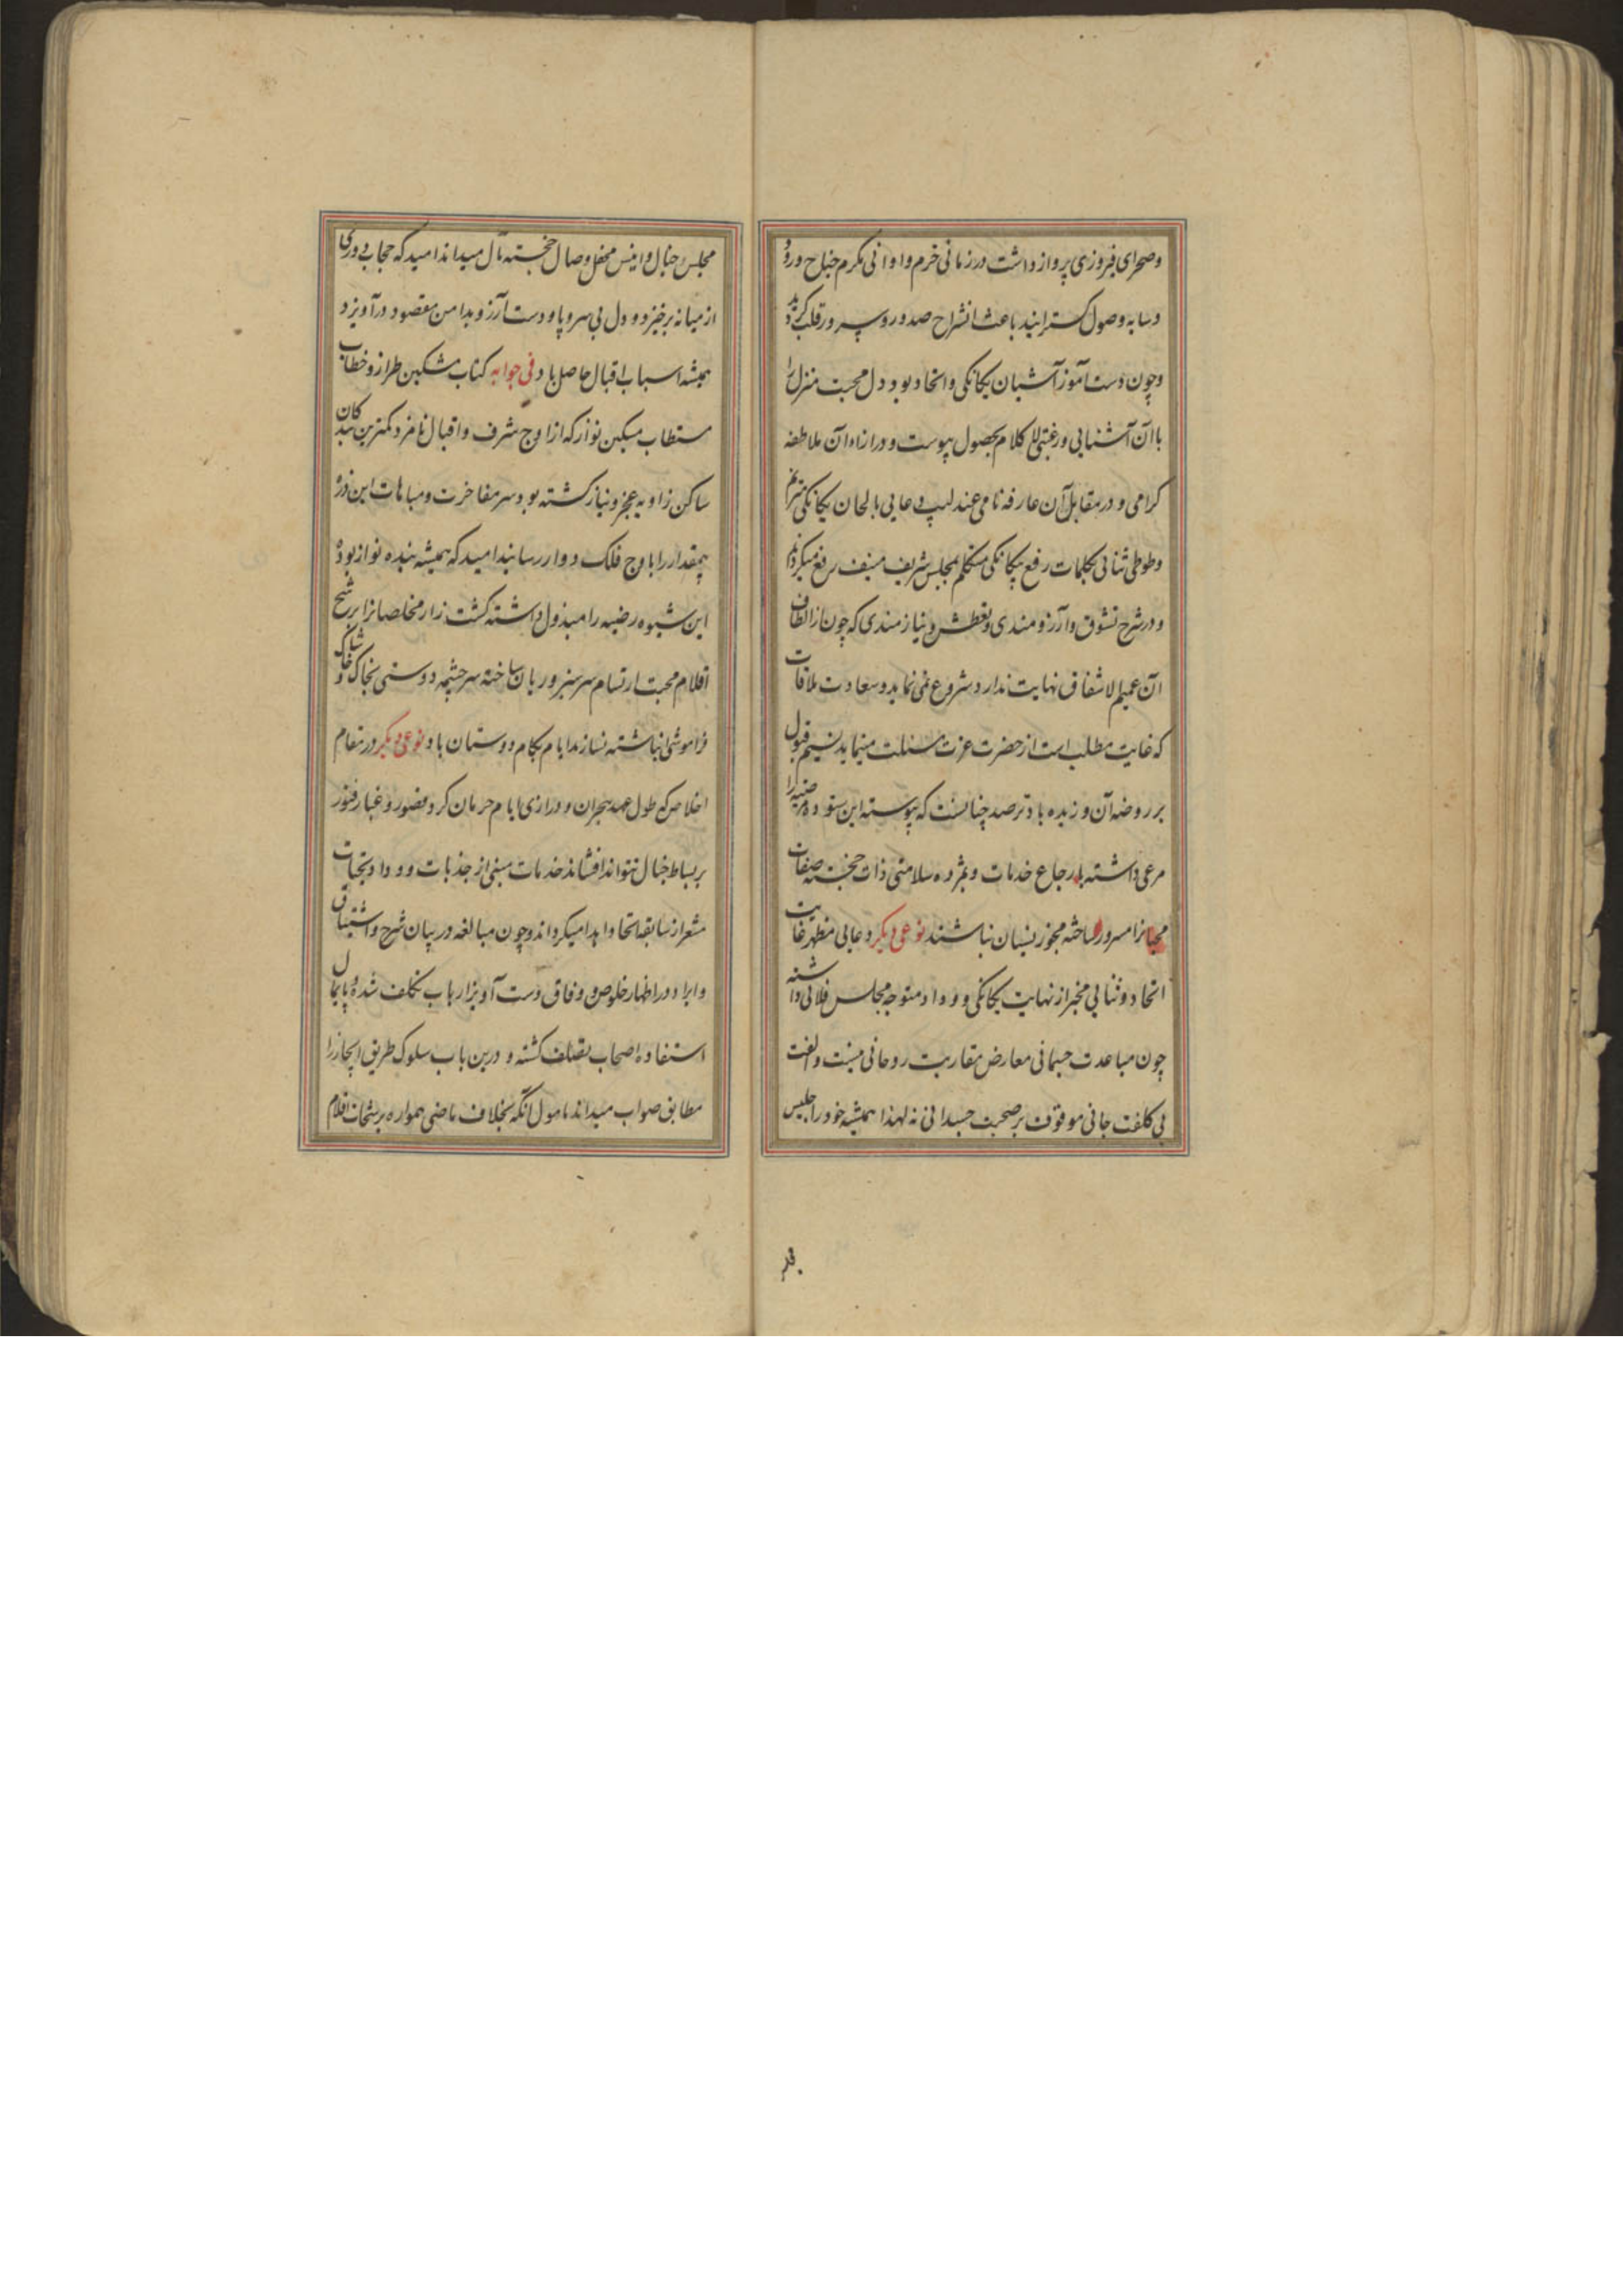 وصحرای فیروزی پرواز داشت در زمانی خرم و اوانی مکرم جناح ورود
و سایه وصول گسترانید باعث انشراح صدور و سرور قلب گردید
و چون دست آموز آشیان یکانکی و اتحاد بود دل محبت منزل را
با آن آشنایی و رغبتی کلام بحصول پیوست و در ازاء آن ملاطفه
کرامی و در مقابل آن عارفه نامی عندلیب دعایی بالحان یکانکی مترنم
و طوطی ثنایی بکلمات رفع بیکانکی متکلم بمجلس شریف منیف رفع میکرداند
و در شرح تشوق و آرزومندی و تعطش و نیازمندی که چون از الطاف
آن عمیم الاشفاق نهایت ندارد شروع نمی نماید و سعادت ملاقات
که غایت مطلب است از حضرت عزت مسئلت مینماید نسیم قبول
بر روضه آن وزیده باد ترصد چنانست که پیوسته این ستوده مرضیه را
مرعی داشته بارجاع خدمات و بمژده سلامتی ذات خجسته صفات
محبانرا مسرور ساخته مجوز نسیان نباشند نوعی دیکر دعایی مظهر غایت
اتحاد و ثنایی مخبر از نهایت یکانکی و وداد متوجه مجالس فلانی داشته
چون مباعدت جسمانی معارض مقاربت روحانی نیست و الفت
بی کلفت جانی موقوف بر صحبت جسدانی نه لهذا همیشه خود را جلیس
مجلس خیال و انیس محفل وصال خجسته مآل میداند امید که حجاب دوری
از میانه برخیزد و دل بی سر و پا و دست آرزو بدامن مقصود در آویزد
همیشه اسباب اقبال حاصل باد فی جوابه کتاب مشکین طراز و خطاب
مستطاب مسکین نواز که از اوج شرف و اقبال نامزد کمترین بندکان
ساکن زاویه عجز و نیاز کشته بود سر مفاخرت و مباهات این ذره
بیمقدار را باوج فلک دوار رسانید امید که همیشه بنده نواز بوده
این شیوه رضیه را مبذول داشته کشت زار مخلصانرا برشح
اقلام محبت ارتسام سرسبز و ریان ساخته سرچشمه دوستی بخاک و خاشاک
فراموشی انباشته نسازند ایام بکام دوستان باد نوعی دیکر در مقام
اخلاص که طول عهد هجران و درازی ایام حرمان کرد قصور و غبار فتور
بر بساط خیال نتواند افشاند خدمات مبنی از جذبات وداد و تحیات
مشعر از سابقه اتحاد اهدا میکرداند و چون مبالغه در بیان شرح و اشتیاق
و ایراد در اظهار خلوص و وفاق دست آویز ارباب تکلف شده و پایمال
استفاده اصحاب تصلف کشته و درین باب سلوک طریق ایجاز را
مطابق صواب میداند مامول آنکه بخلاف ماضی همواره برشحات اقلام